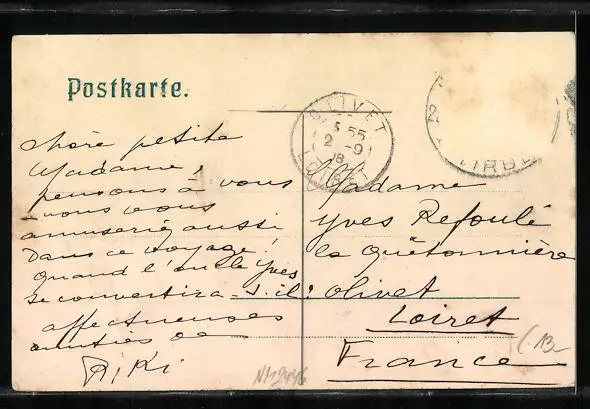 Postkarte.
chère petite
Madame,
pensons à vous
vous vous
amuseriez aussi
dans ce voyage!
quand l'oncle Yves
se convertira-t-il?
affectueuses
amitiés de
Riki
OLIVET
55
2 -9
08
LOIRET
Madame
Yves Refoulé
la Quêtonnière
Olivet
Loiret
France
13